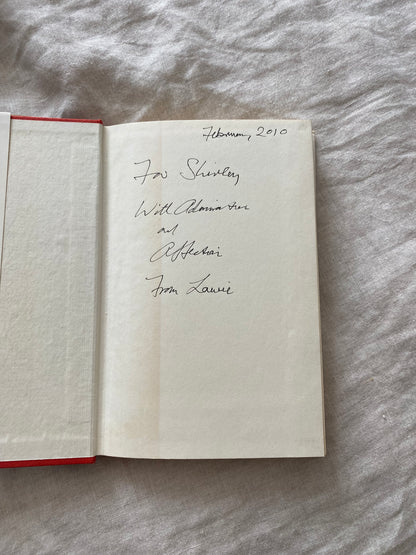 February, 2010
For Shirley
With Admiration
and
Affection
From Lawrie